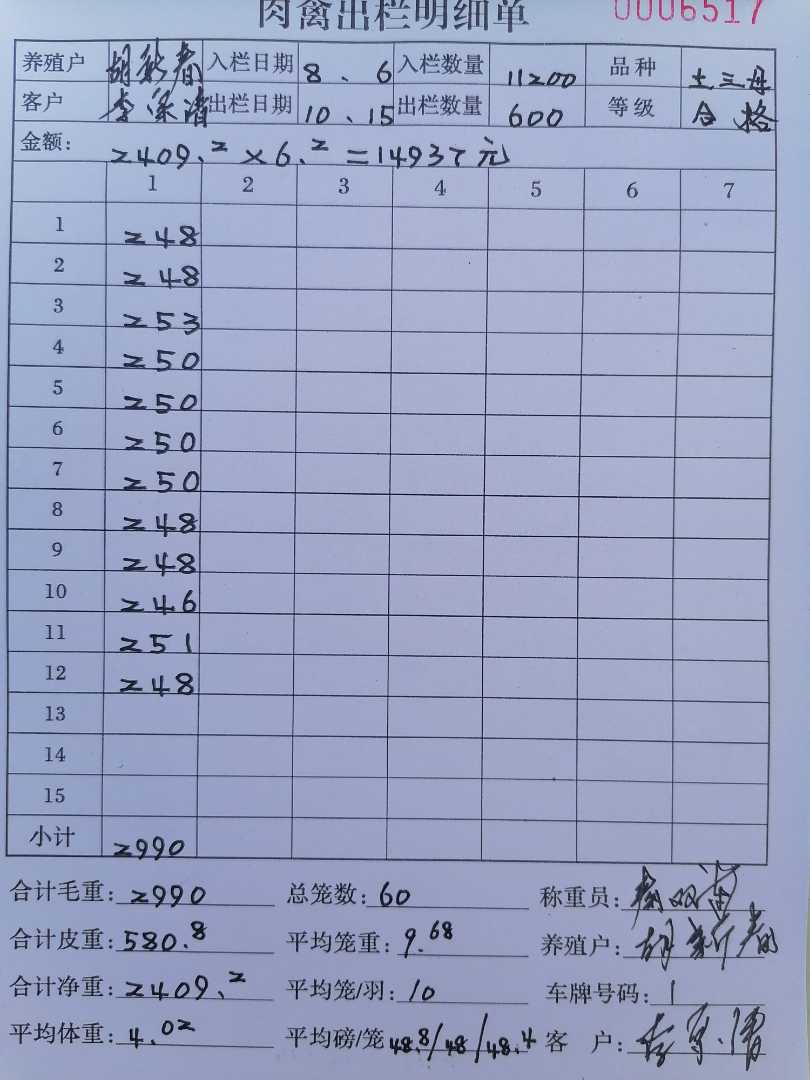 肉禽出栏明细单 0006517
养殖户 胡新春 入栏日期 8、6 入栏数量 11200 品种 土三母
客户 出栏日期 10、15 出栏数量 600 等级 合格
金额: 2409.2×6.2=14937元
1 2 3 4 5 6 7
1 248
2 248
3 253
4 250
5 250
6 250
7 250
8 248
9 248
10 246
11 251
12 248
13
14
15
小计 2990
合计毛重: 2990 总笼数: 60 称重员:
合计皮重: 580.8 平均笼重: 9.68 养殖户: 胡新春
合计净重: 2409.2 平均笼/羽: 10 车牌号码: 1
平均体重: 4.02 平均磅/笼 48.8/48/48.4 客 户: